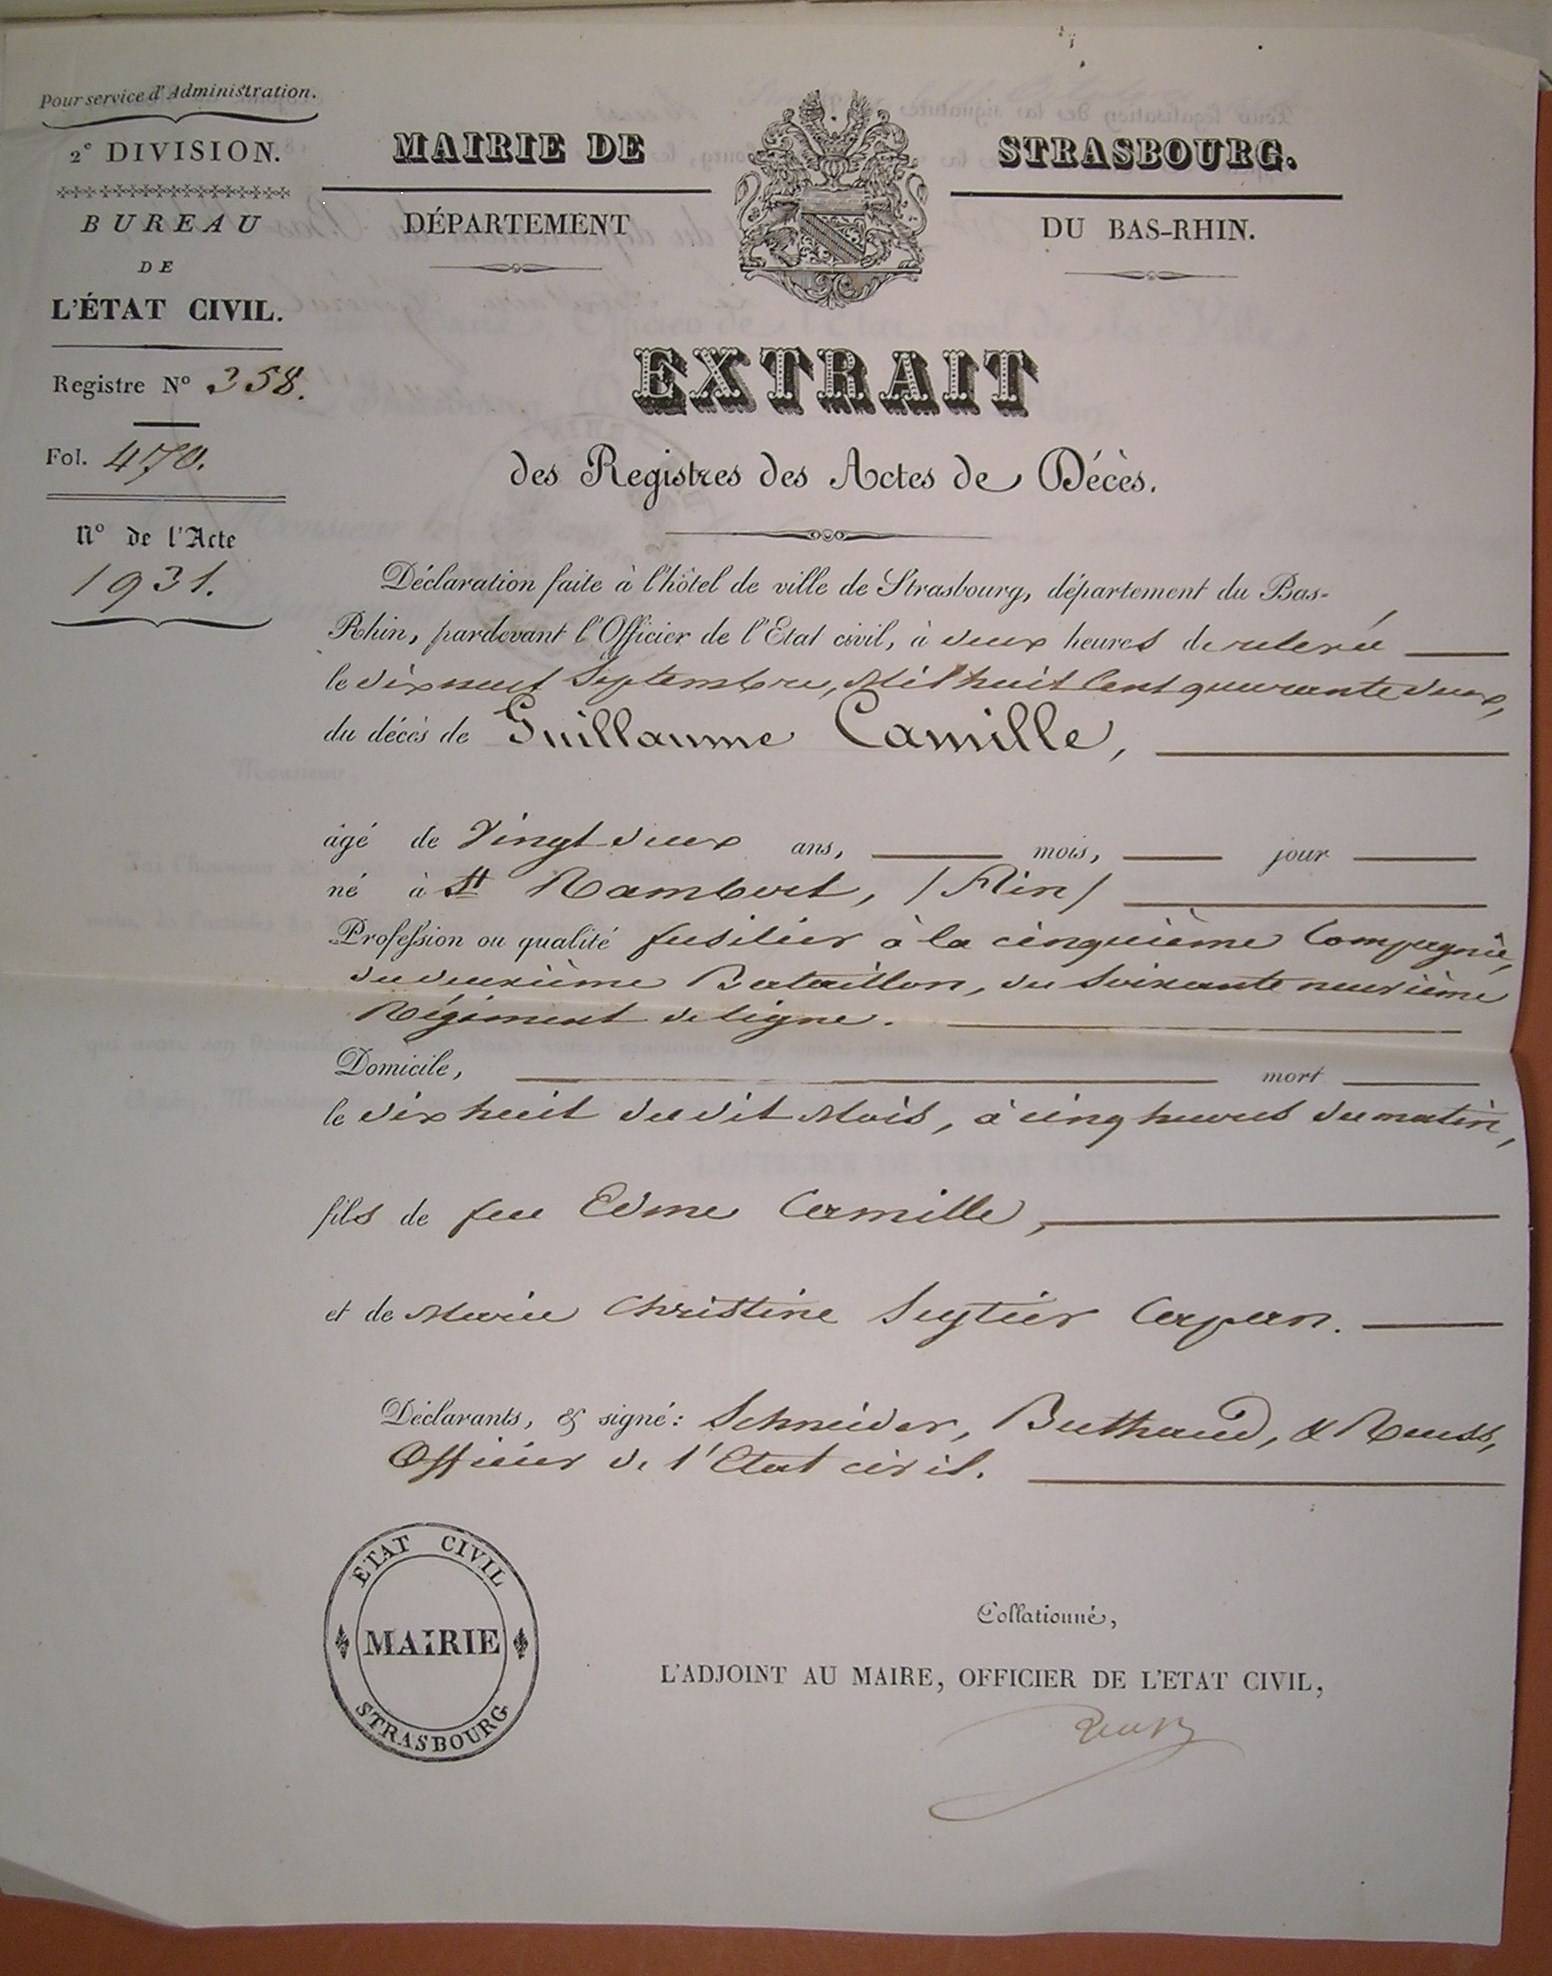 Pour service d'Administration.
2e DIVISION.
BUREAU
DE
L'ÉTAT CIVIL.
Registre No 358.
Fol. 470.
No de l'Acte
1931.
MAIRIE DE STRASBOURG.
DÉPARTEMENT DU BAS-RHIN.
EXTRAIT
des Registres des Actes de Décès.
Déclaration faite à l'hôtel de ville de Strasbourg, département du Bas-
Rhin, pardevant l'Officier de l'Etat civil, à deux heures de relevée
le dix neuf Septembre, Mil huit Cent quarante deux,
du décès de Guillaume Camille,
âgé de Vingt deux ans, mois, jour
né à St Rambert, (Ain)
Profession ou qualité fusilier à la cinquième Compagnie,
du deuxième Bataillon, du Soixante neuvième
Régiment de ligne.
Domicile, mort
le dix huit du dit Mois, à cinq heures du matin,
fils de feu Edme Camille,
et de Marie Christine Seytier Capan.
Déclarants, & signé: Schneider, Buthaud, & Reuss,
Officier de l'Etat civil.
ETAT CIVIL
MAIRIE
STRASBOURG
Collationné,
L'ADJOINT AU MAIRE, OFFICIER DE L'ETAT CIVIL,
Reuss